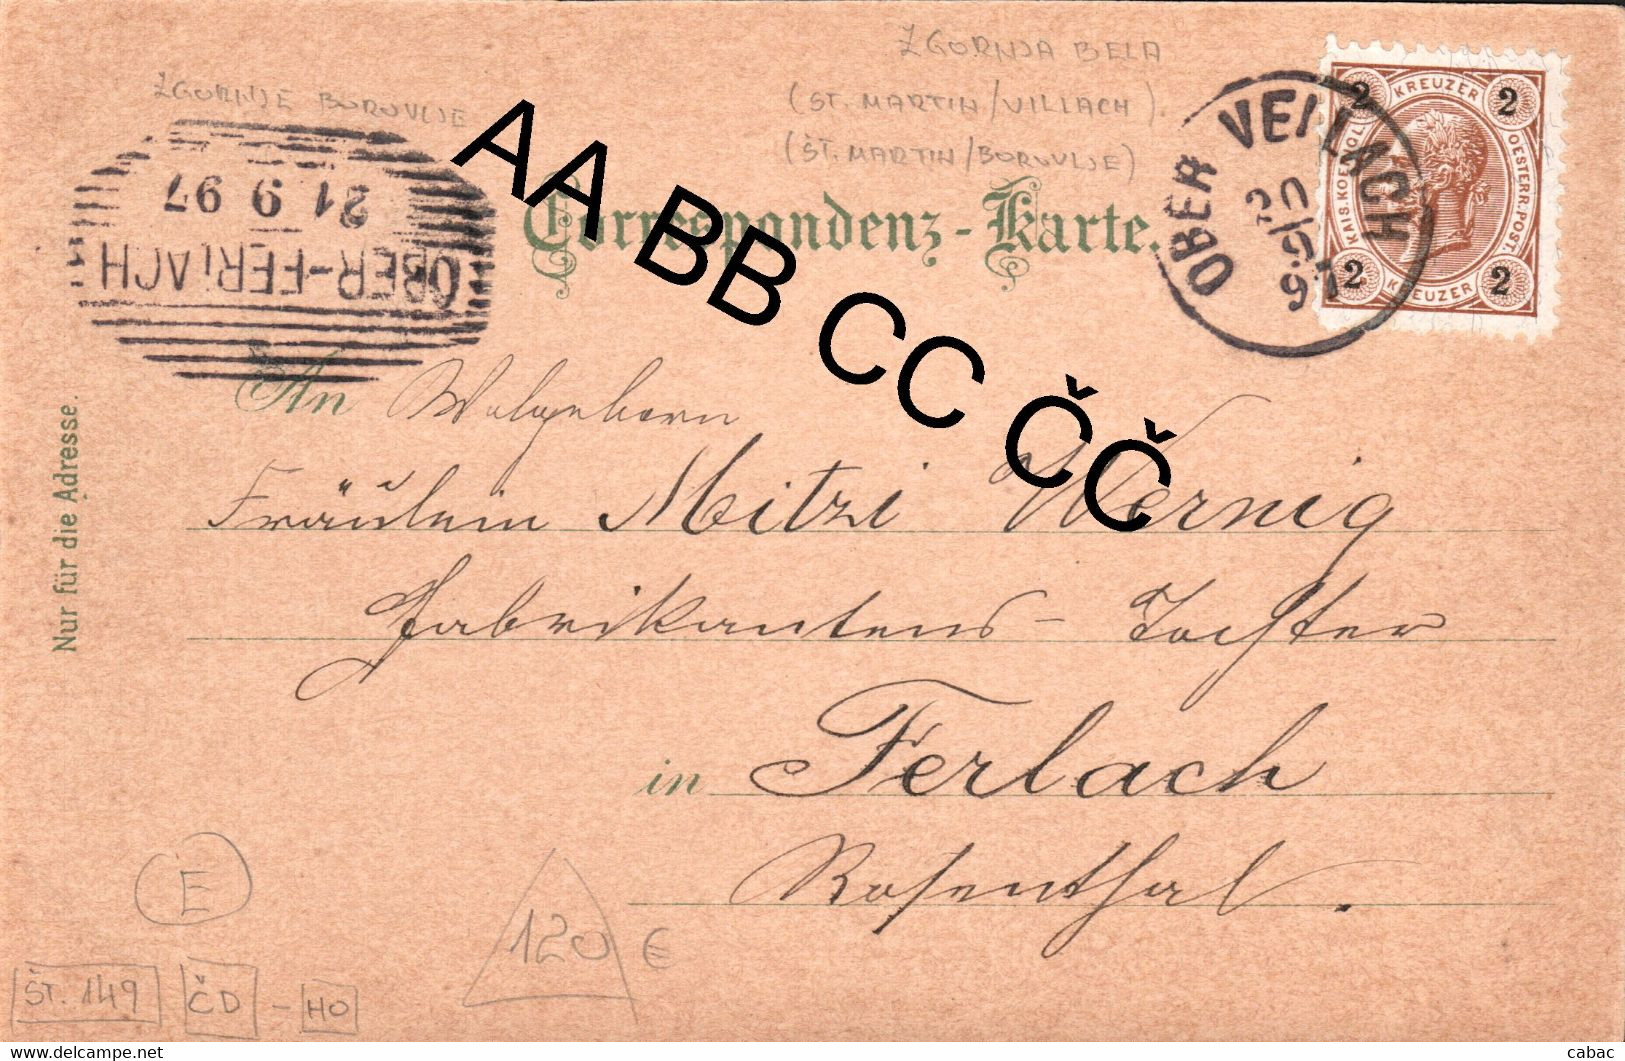 ZGORNJA BELA
(ST. MARTIN/VILLACH)
(ŠT. MARTIN/BOROVLJE)
ZGORNJE BOROVLJE
OBER-FERLACH
21 9 97
OBER VELLACH
20/9
2 KREUZER 2
KAIS. KOENIGL. OESTERR. POST.
2 KREUZER 2
Correspondenz-Karte.
AA BB CC ČČ
An Wolgeborn
Fräulein Mitzi Wernig
Fabrikantens-Tochter
in Ferlach
Rosenthal.
Nur für die Adresse.
E
120 €
ŠT. 149 ČD - HO
www.delcampe.net
cabac